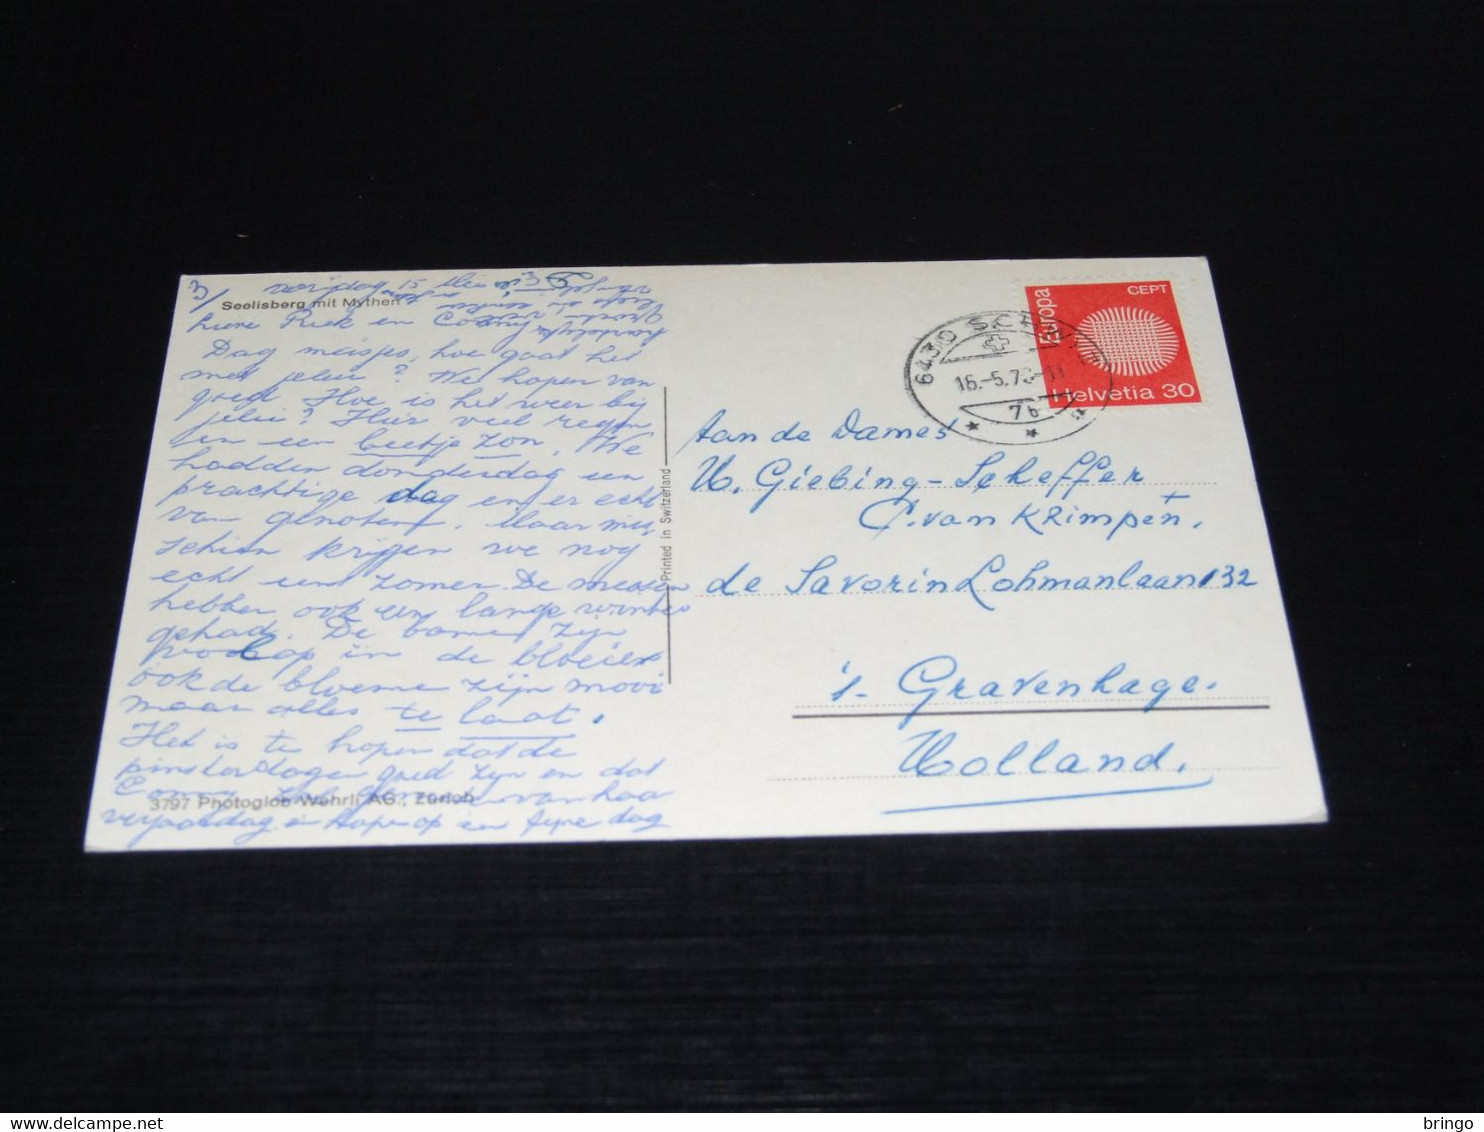 3/ vrijdag 15 Mei
Seelisberg mit Mythen
Lieve Riek en Conny
Dag meisjes, hoe gaat het
met jelui? We hopen van
goed. Hoe is het weer bij
jelui? Hier veel regen
en een beetje zon. We
hadden donderdag een
prachtige dag en er echt
van genoten. Maar mis
schien krijgen we nog
echt een zomer. De mensen
hebben ook een lange winter
gehad. De bomen zijn
ook de bloemen zijn mooi
maar alles te laat.
Het is te hopen dat de
pinksterdagen goed zijn en dat
3797 Photoglob-Wehrli AG., Zürich
verjaardag en hopen op een fijne dag
Printed in Switzerland
6430 SCHWYZ
16.-5.70-11
Europa
CEPT
Helvetia 30
Aan de Dames
H. Giebing-Scheffer
C. van Krimpen.
de Savorin Lohmanlaan 132
's-Gravenhage.
Holland.
delcampe.net
bringo